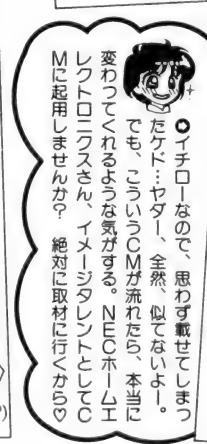 ✪イチローなので、思わず載せてしまっ
たケド…ヤダー、全然、似てないよー。
でも、こういうCMが流れたら、本当に
変わってくれるような気がする。NECホームエ
レクトロニクスさん、イメージタレントとしてC
Mに起用しませんか？　絶対に取材に行くから♡